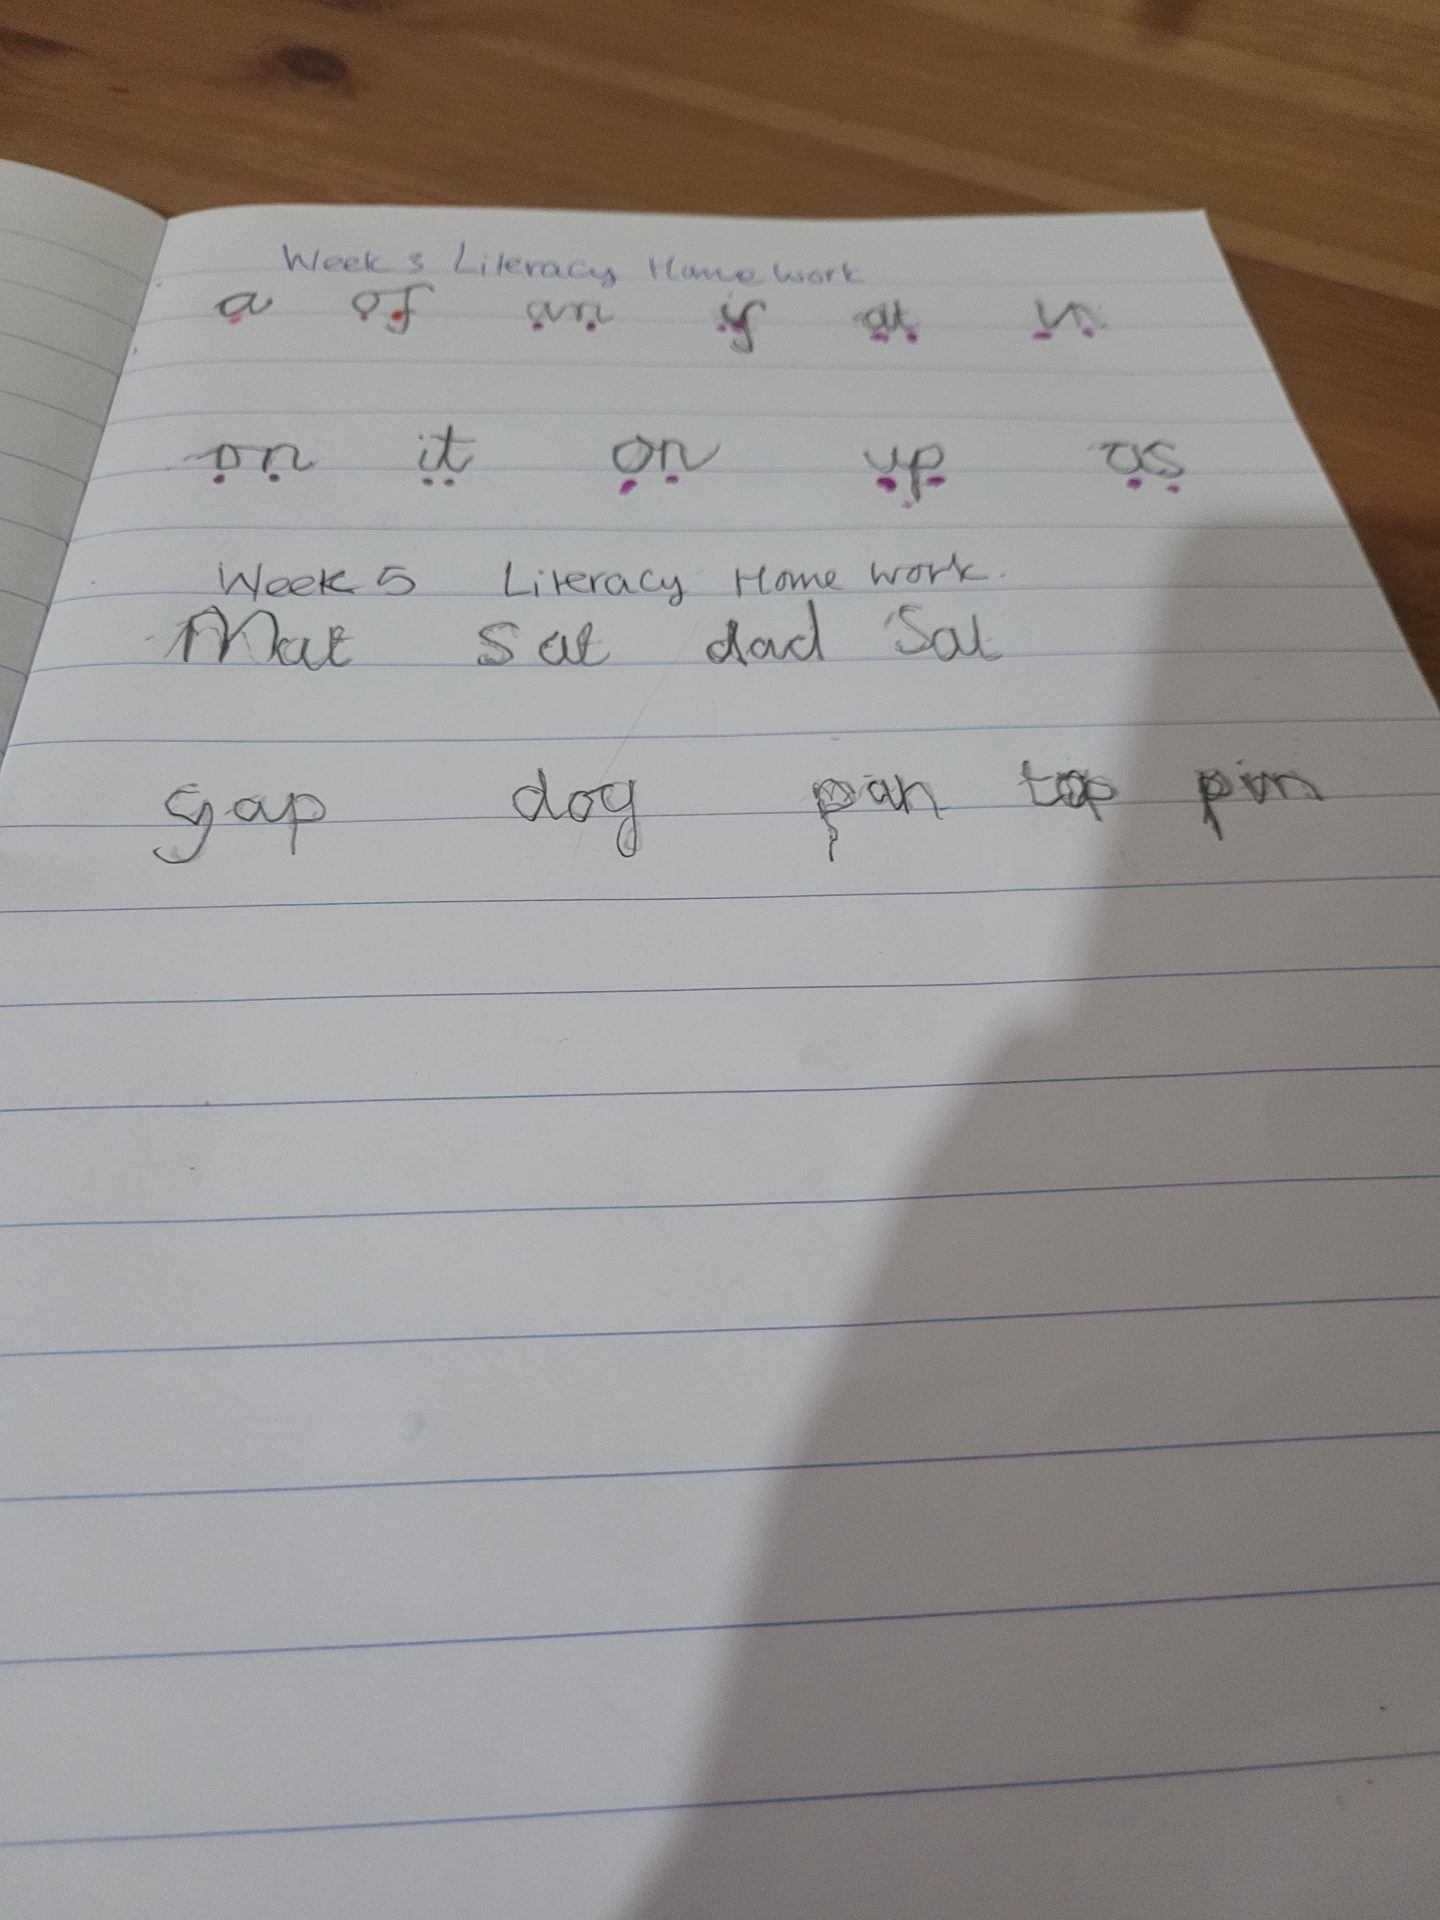 Week 3 Literacy Home work
a of an if at in
on it on up as
Week 5 Literacy Home work.
Mat sat dad Sat
gap dog pan top pin